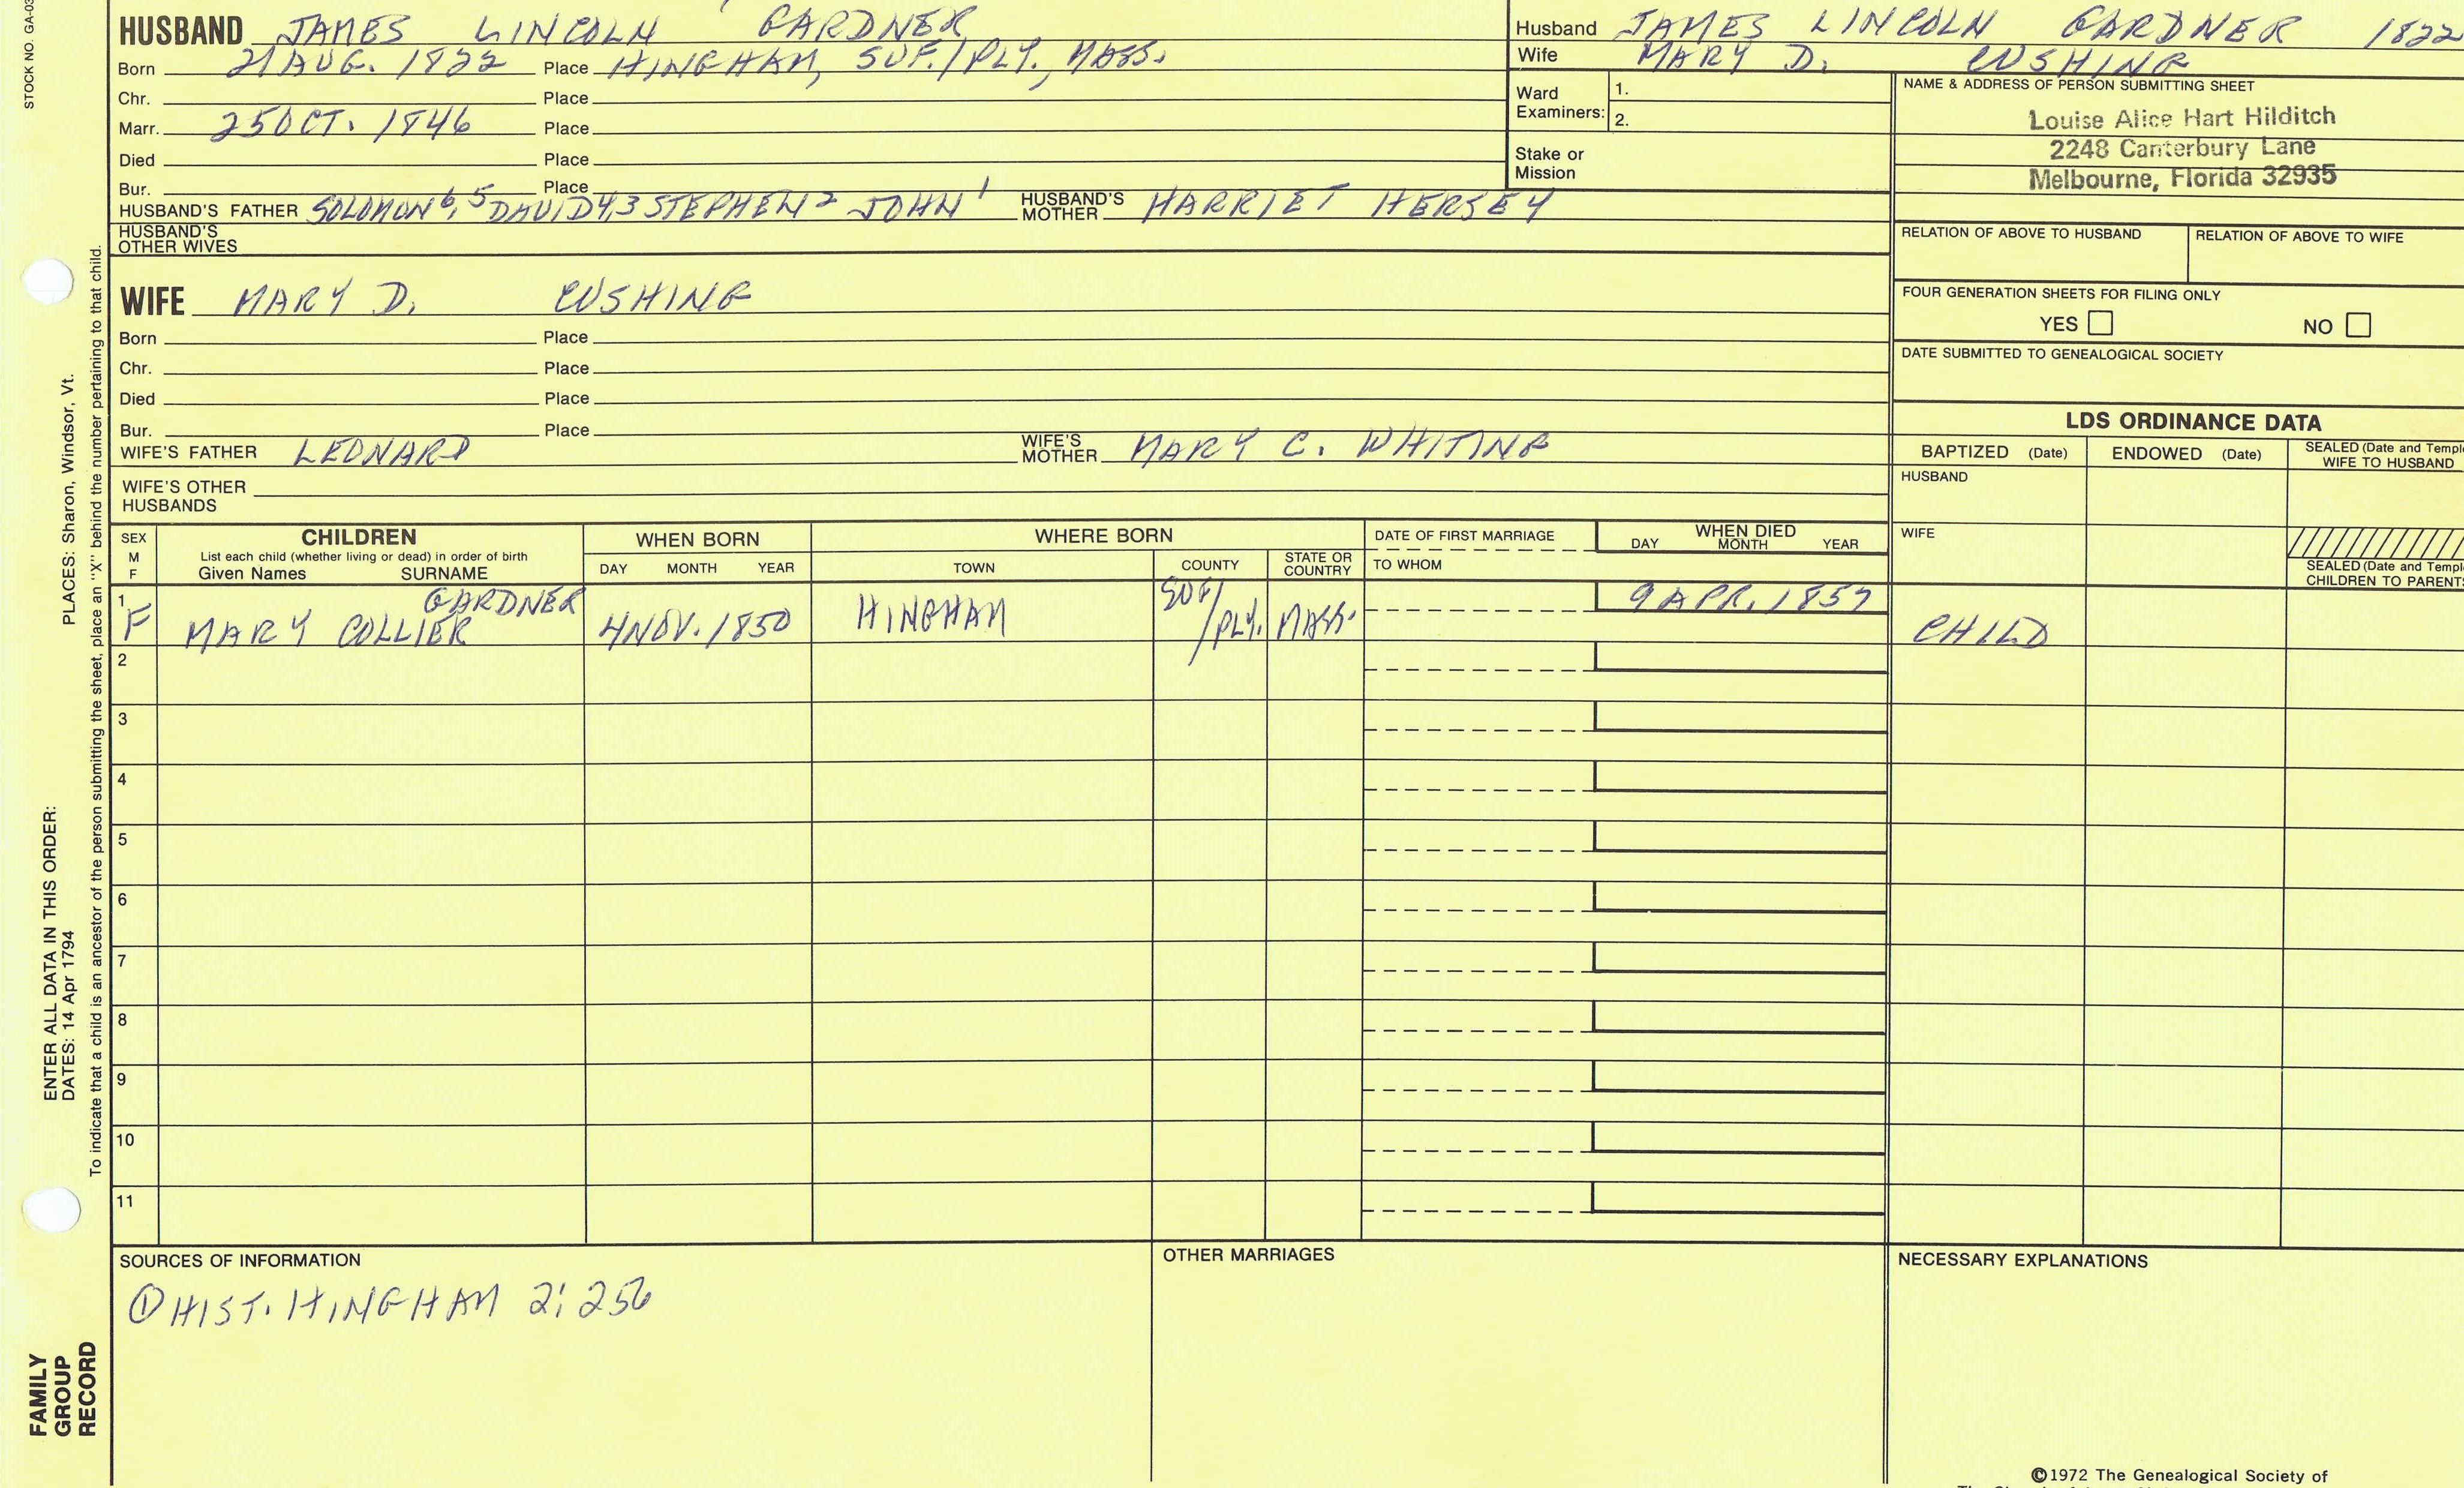 STOCK NO. GA-03
HUSBAND JAMES LINCOLN GARDNER
Born 21 AUG. 1822 Place HINGHAM, SUF./PLY., MASS.
Chr. Place
Marr. 25 OCT. 1846 Place
Died Place
Bur. Place
HUSBAND'S FATHER SOLOMON 6,5 DAVID 4,3 STEPHEN 2 JOHN 1 HUSBAND'S MOTHER HARRIET HERSEY
HUSBAND'S OTHER WIVES
WIFE MARY D. CUSHING
Born Place
Chr. Place
Died Place
Bur. Place
WIFE'S FATHER LEONARD WIFE'S MOTHER MARY C. WHITING
WIFE'S OTHER HUSBANDS
Husband JAMES LINCOLN GARDNER 1822
Wife MARY D. CUSHING
Ward Examiners: 1.
2.
Stake or Mission
NAME & ADDRESS OF PERSON SUBMITTING SHEET
Louise Alice Hart Hilditch
2248 Canterbury Lane
Melbourne, Florida 32935
RELATION OF ABOVE TO HUSBAND RELATION OF ABOVE TO WIFE
FOUR GENERATION SHEETS FOR FILING ONLY
YES NO
DATE SUBMITTED TO GENEALOGICAL SOCIETY
LDS ORDINANCE DATA
BAPTIZED (Date) ENDOWED (Date) SEALED (Date and Templ
WIFE TO HUSBAND
HUSBAND
WIFE
SEALED (Date and Templ
CHILDREN TO PARENT
SEX
M
F
CHILDREN
List each child (whether living or dead) in order of birth
Given Names SURNAME
WHEN BORN
DAY MONTH YEAR
WHERE BORN
TOWN COUNTY STATE OR COUNTRY
DATE OF FIRST MARRIAGE
TO WHOM
WHEN DIED
DAY MONTH YEAR
1 GARDNER
F MARY COLLIER 4 NOV. 1850 HINGHAM SUF/ /PLY. MASS. 9 APR. 1857 CHILD
2
3
4
5
6
7
8
9
10
11
SOURCES OF INFORMATION
① HIST. HINGHAM 2: 256
OTHER MARRIAGES
NECESSARY EXPLANATIONS
©1972 The Genealogical Society of
ENTER ALL DATA IN THIS ORDER:
DATES: 14 Apr 1794 PLACES: Sharon, Windsor, Vt.
To indicate that a child is an ancestor of the person submitting the sheet, place an "X" behind the number pertaining to that child.
FAMILY
GROUP
RECORD